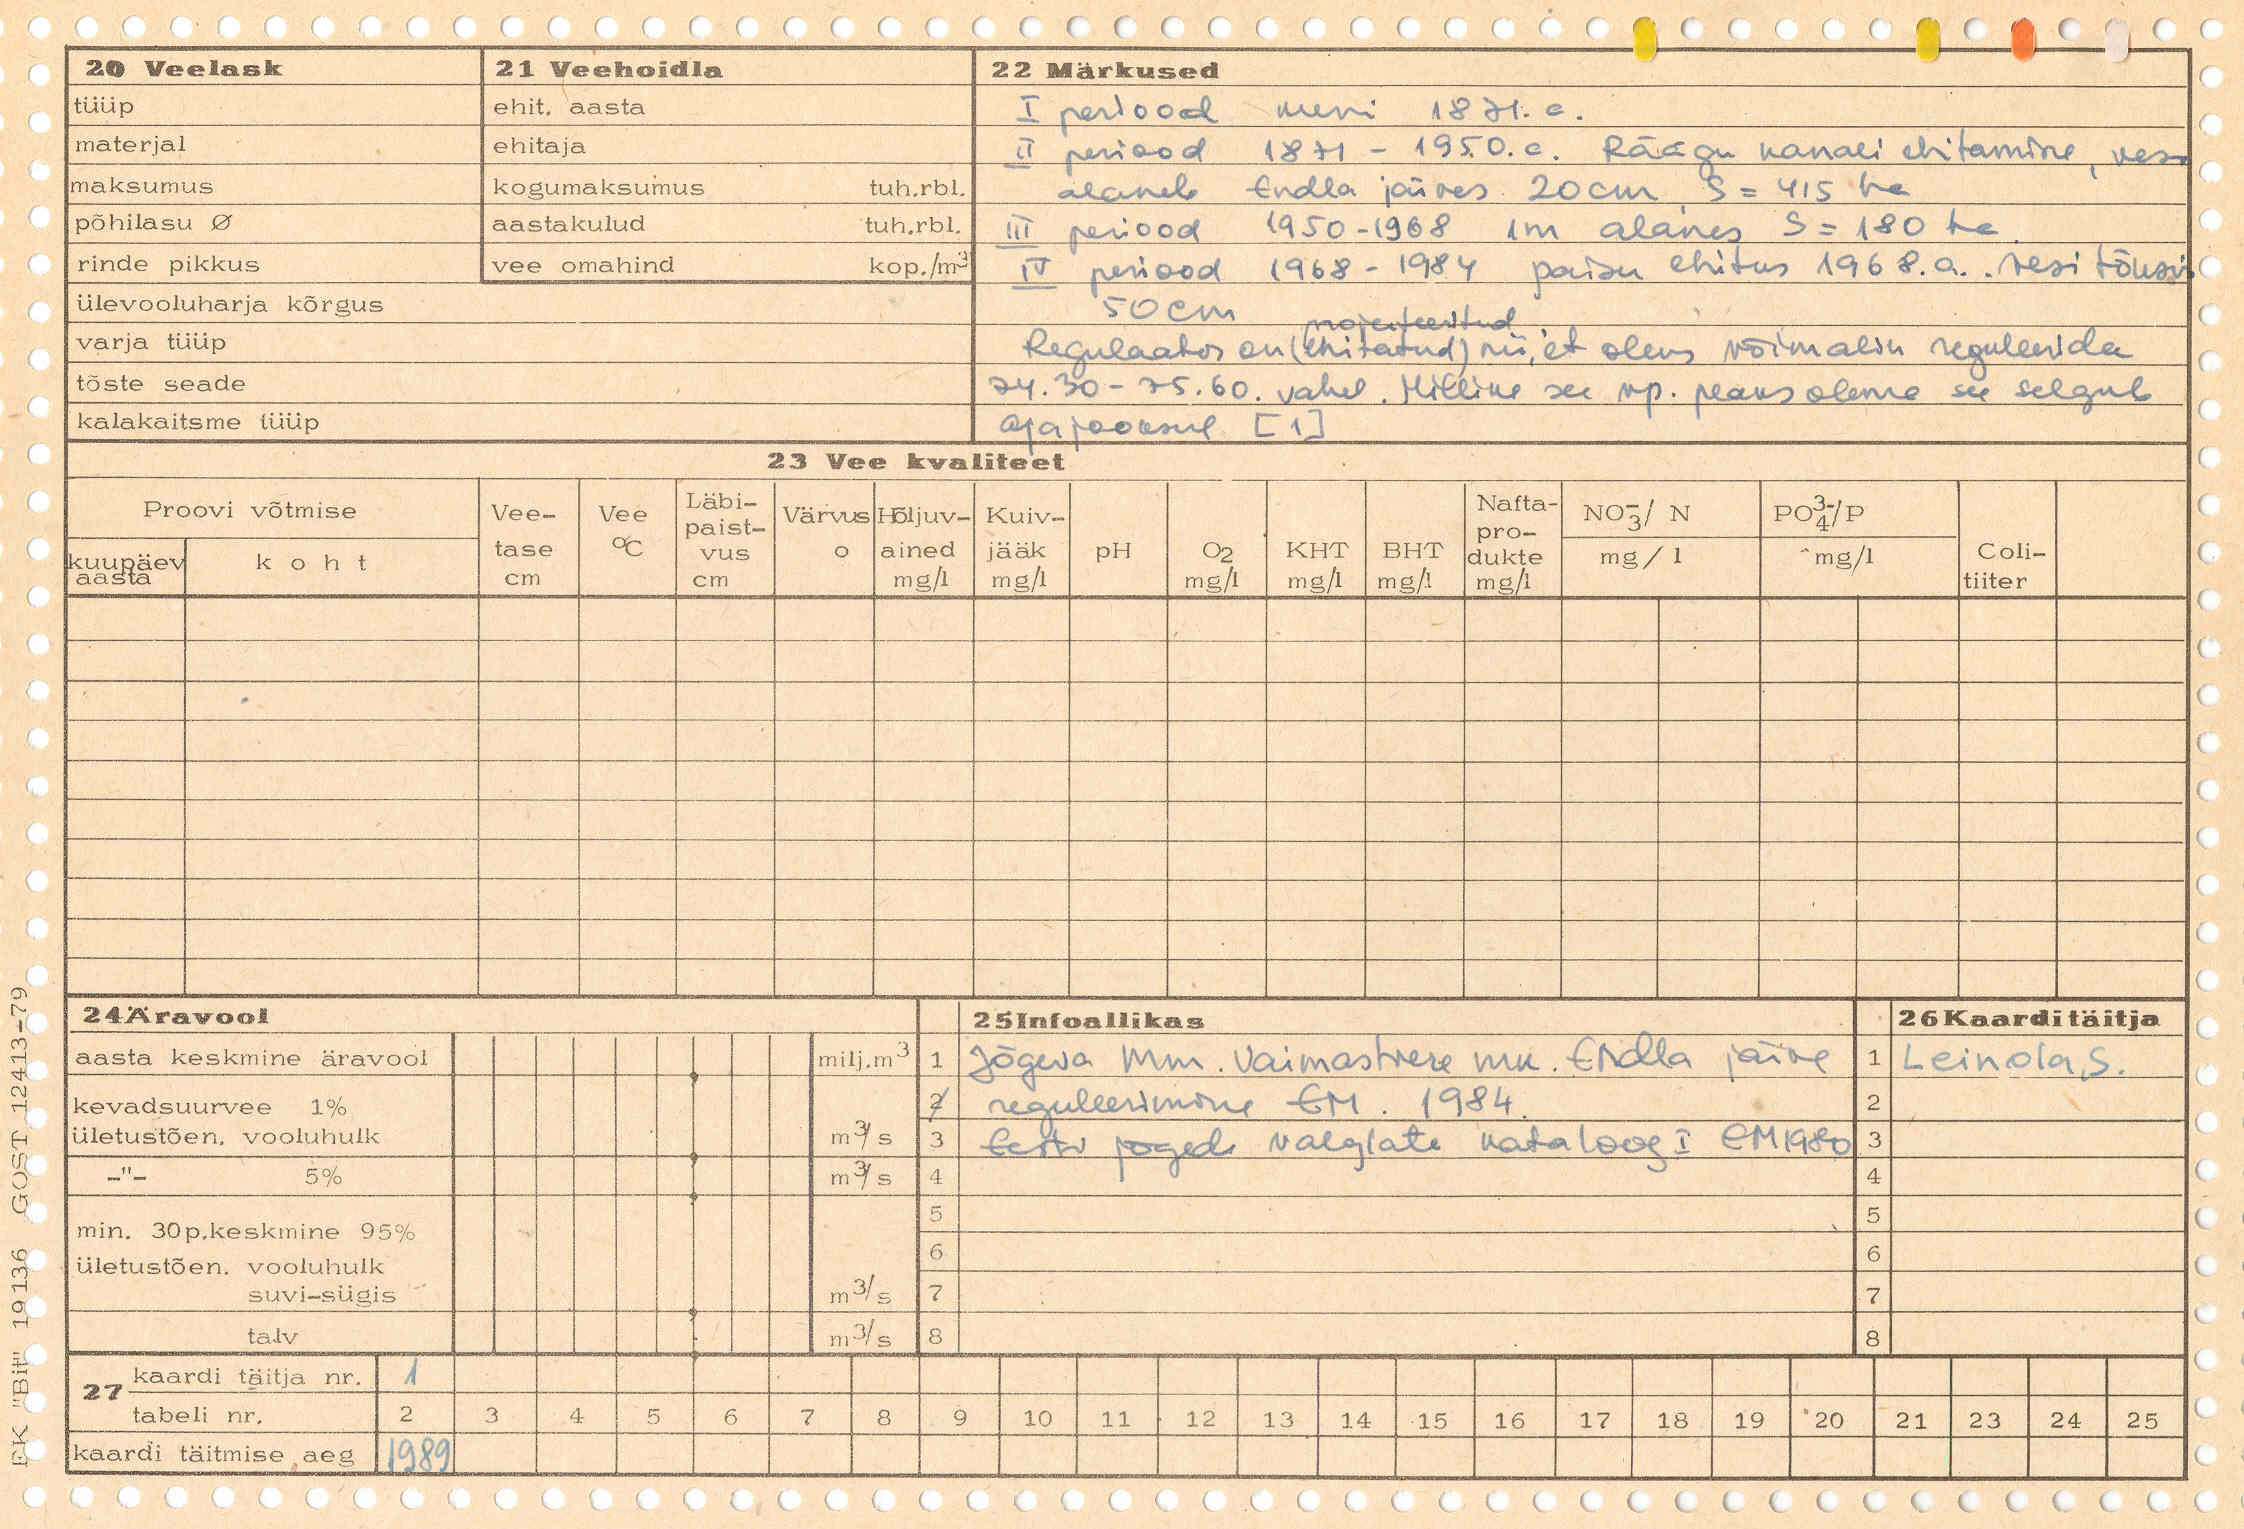 20 Veelask
tüüp
materjal
maksumus
põhilasu Ø
rinde pikkus
ülevooluharja kõrgus
varja tüüp
tõste seade
kalakaitsme tüüp
21 Veehoidla
ehit. aasta
ehitaja
kogumaksumus tuh.rbl.
aastakulud tuh.rbl.
vee omahind kop./m³
22 Märkused
I periood kuni 1871. a.
II periood 1871 - 1950. a. Räägu kanali ehitamine, vesi
alaneb Endla järves 20cm S = 415 ha
III periood 1950-1968 1m alanes S = 180 ha.
IV periood 1968 - 1984 paisu ehitus 1968. a. vesi tõusis
50cm
projekteeritud
Regulaator on (ehitatud) nii, et oleks võimalik reguleerida
74.30 - 75.60. vahel. Milline see np. peaks olema see selgub
aja jooksul [1]
23 Vee kvaliteet
Proovi võtmise
kuupäev aasta
koht
Vee-tase cm
Vee °C
Läbi-paist-vus cm
Värvus o
Hõljuv-ained mg/l
Kuiv-jääk mg/l
pH
O2 mg/l
KHT mg/l
BHT mg/l
Nafta-pro-dukte mg/l
NO3⁻/ N mg / l
PO4³⁻/P mg/l
Coli-tiiter
24 Äravool
aasta keskmine äravool milj.m³
kevadsuurvee 1%
ületustõen. vooluhulk m³/s
-"- 5% m³/s
min. 30p.keskmine 95%
ületustõen. vooluhulk
suvi-sügis m³/s
talv m³/s
25 Infoallikas
1 Jõgeva Mm. Vaimastvere mk. Endla järve
2 reguleerimine EM. 1984.
3 Eesti jõgede valglate kataloog I EM 1980
4
5
6
7
8
26 Kaarditäitja
1 Leinola, S.
2
3
4
5
6
7
8
27 kaardi täitja nr. 1
tabeli nr. 2 3 4 5 6 7 8 9 10 11 12 13 14 15 16 17 18 19 20 21 23 24 25
kaardi täitmise aeg 1989
EK "Bit" 19136 GOST 12413-79